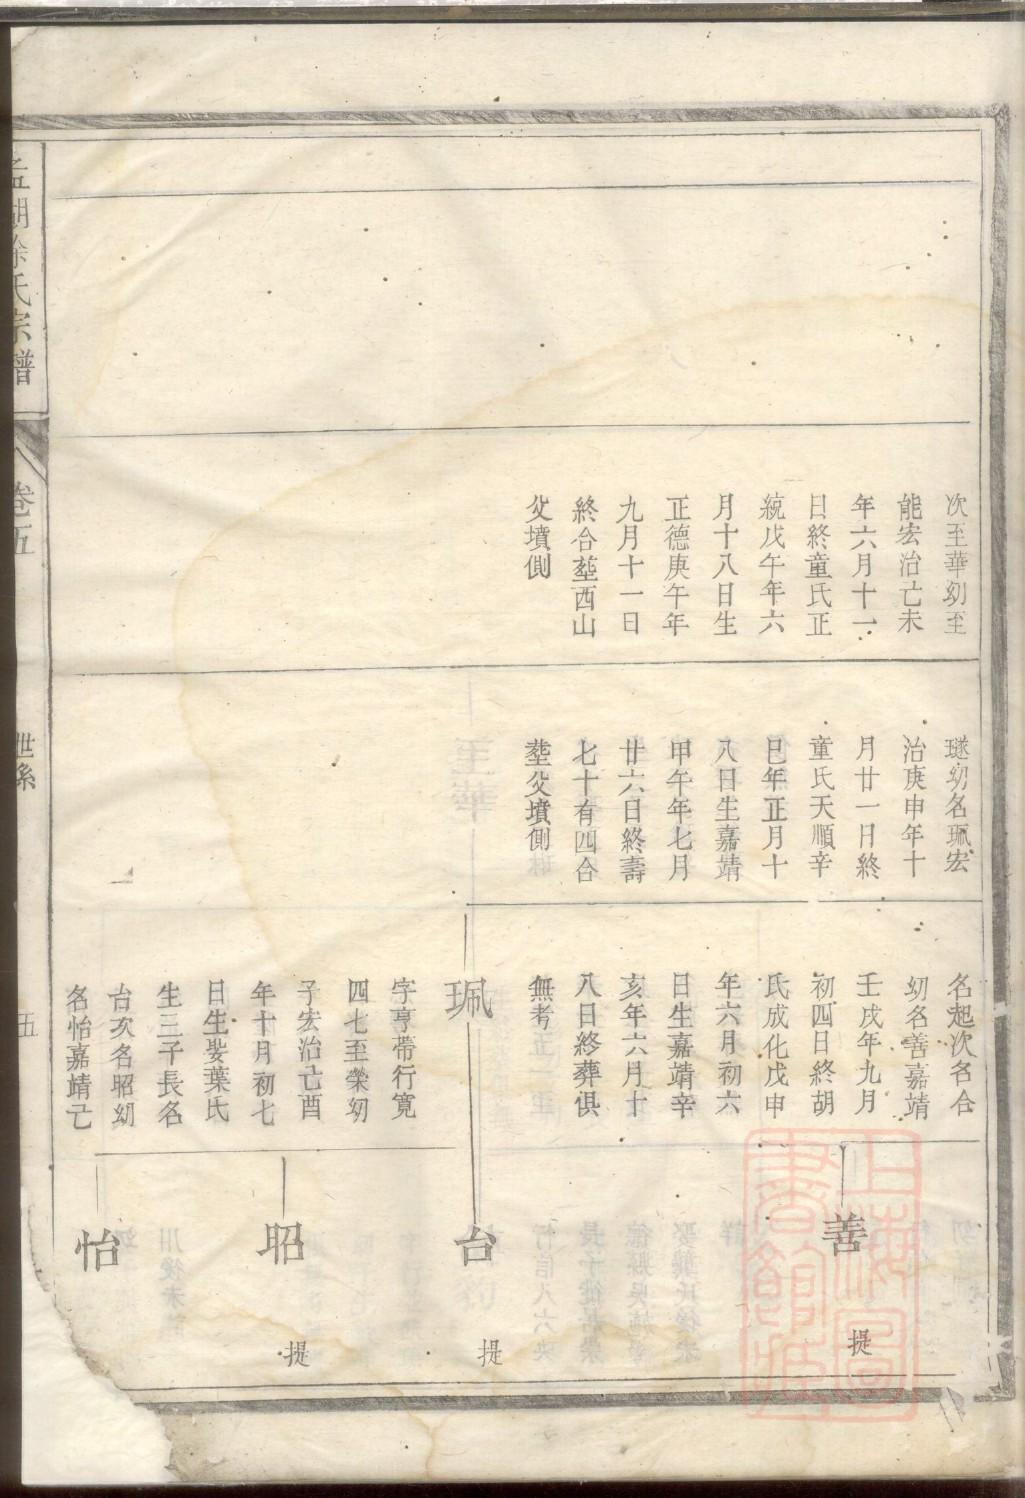 次至華幼至
能宏治己未
年六月十一
日終童氏正
統戊午年六
月十八日生
正德庚午年
九月十一日
終合塟西山
父墳側
璲幼名珮宏
治庚申年十
月廿一日終
童氏天順辛
巳年正月十
八日生嘉靖
甲午年七月
廿六日終壽
七十有四合
塟父墳側
名起次名合
幼名善嘉靖
壬戌年九月
初四日終胡
氏成化戊申
年六月初六
日生嘉靖辛
亥年六月十
八日終葬俱
無考
珮
字亨帶行寬
四七至榮幼
子宏治己酉
年十月初七
日生娶葉氏
生三子長名
台次名昭幼
名怡嘉靖己
善
提
台
提
昭
提
怡
孟湖徐氏宗譜
卷五
世系
五
上海圖
書館藏